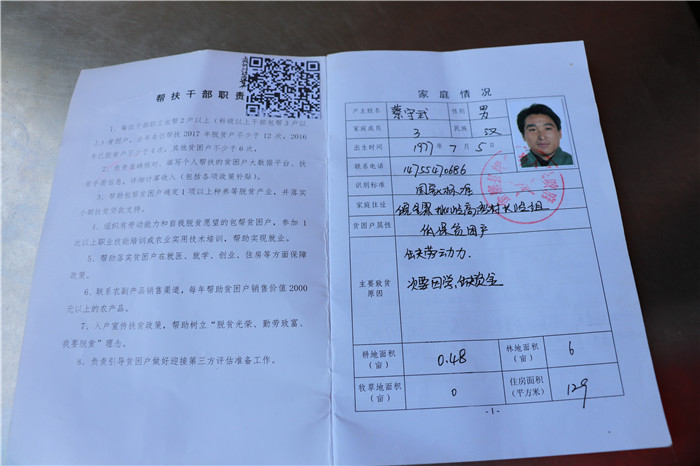 帮扶干部职责
1、每位干部职工包帮2户以上（科级以上干部包帮3户以
上）贫困户，全年走访帮扶2017年脱贫户不少于12次，2016
年已脱贫户不少于4次，其他贫困户不少于6次。
2、负责准确核对、填写个人帮扶的贫困户大数据平台、扶
贫手册信息，详细计算收入（包括各项政策补贴）。
3、帮助包帮贫困户确定1项以上种养等脱贫产业，并落实
小额扶贫贷款支持。
4、组织有劳动能力和自我脱贫愿望的包帮贫困户，参加1
次以上职业技能培训或农业实用技术培训，帮助实现就业。
5、帮助落实贫困户在就医、就学、创业、住房等方面保障
政策。
6、联系农副产品销售渠道，每年帮助贫困户销售价值2000
元以上的农产品。
7、入户宣传扶贫政策，帮助树立“脱贫光荣、勤劳致富、
我要脱贫”理念。
8、负责引导贫困户做好迎接第三方评估准备工作。
家庭情况
户主姓名 蔡守武 性别 男
家庭成员 3 民族 汉
出生时间 1977年7月5日
联系电话 14755470686
识别标准 国家标准
家庭住址 组
贫困户属性 低保贫困户
主要致贫
原因
缺劳动力.
次要因学,缺资金
耕地面积
（亩）
0.48
林地面积
（亩）
6
牧草地面积
（亩）
0
住房面积
（平方米）
129
-1-